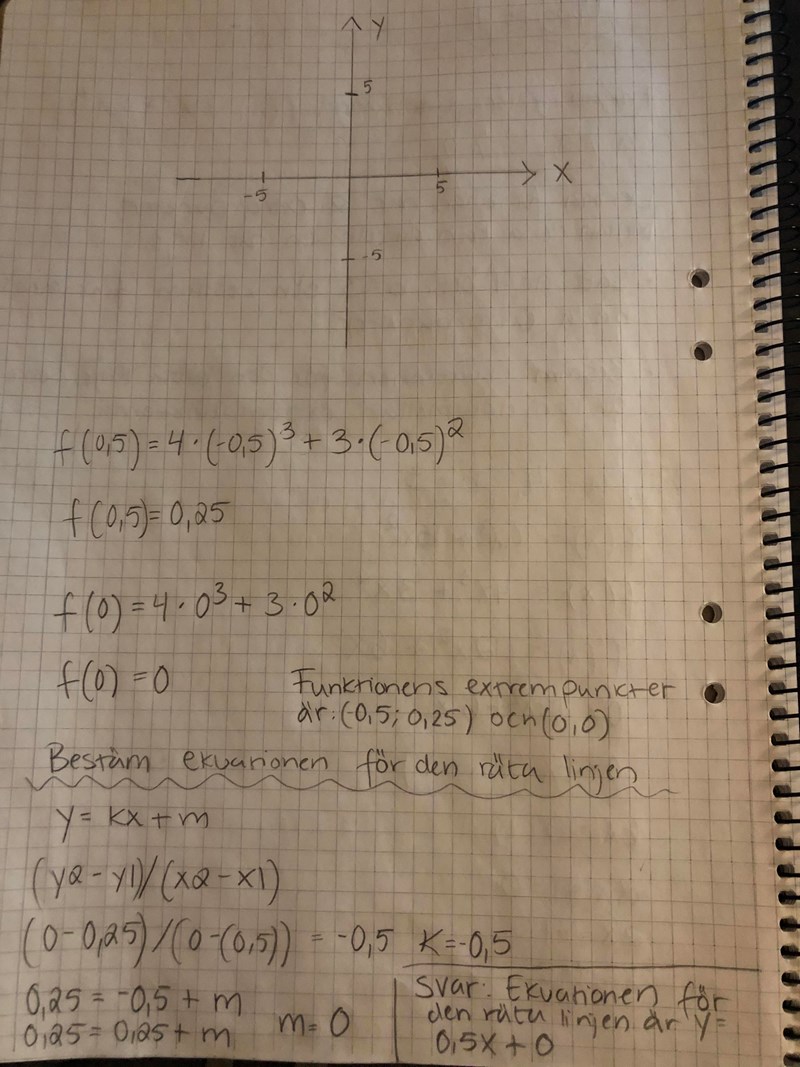 Y
5
-5
5
X
-5
f(0,5) = 4·(-0,5)³ + 3·(-0,5)²
f(0,5) = 0,25
f(0) = 4·0³ + 3·0²
f(0) = 0
Funktionens extrempunkter
är: (-0,5; 0,25) och (0,0)
Bestäm ekvationen för den räta linjen
y = kx + m
(y2 - y1)/(x2 - x1)
(0 - 0,25)/(0 - (0,5)) = -0,5
K = -0,5
0,25 = -0,5 + m
0,25 = 0,25 + m
m = 0
Svar: Ekvationen för
den räta linjen är y =
0,5x + 0